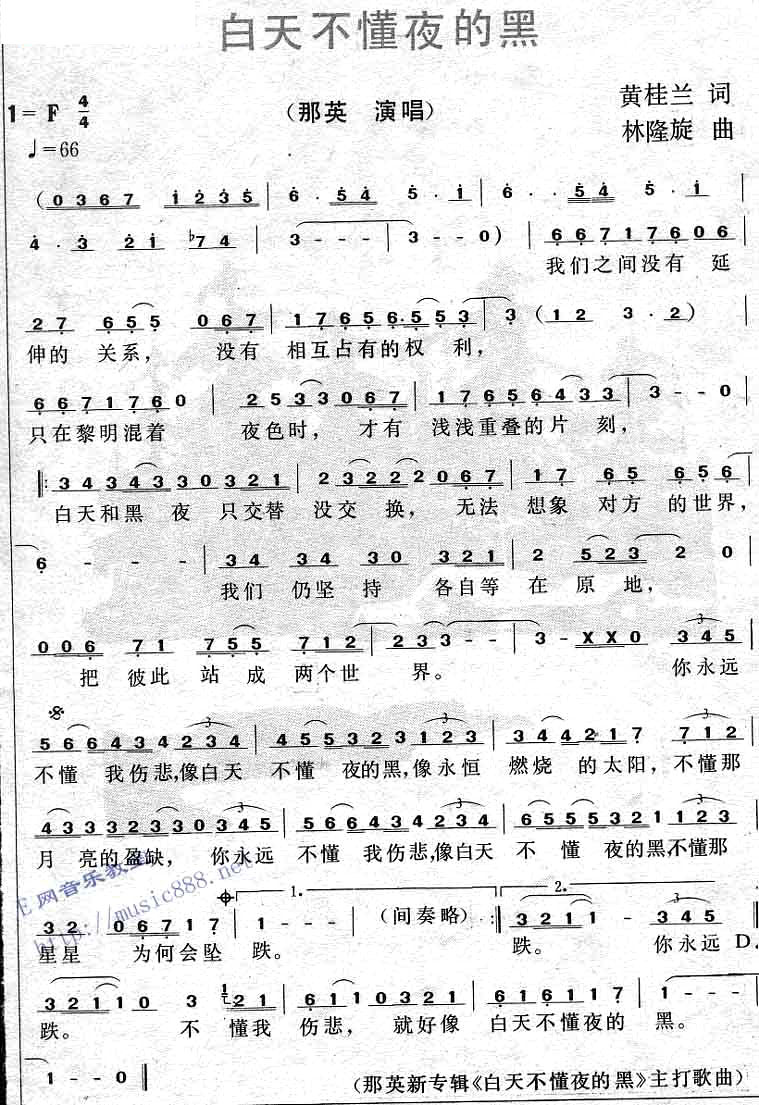 白天不懂夜的黑
1=F 4/4
（那英 演唱）
黄桂兰 词
♩=66
林隆旋 曲
(0367 1235 | 6·54 5·1 | 6··54 5·1 |
4·3 21 b74 | 3--- | 3--0) | 66717606 |
我们之间没有 延
27 655 067 | 17656·553 | 3 (12 3·2) |
伸的 关系， 没有 相互占有的权 利，
6671760 | 2533067 | 17656433 | 3--0 |
只在黎明混着 夜色时， 才有 浅浅重叠的片 刻，
‖: 343433 0321 | 23222067 | 17 65 656 |
白天和黑 夜 只交替 没交 换， 无法 想象 对方 的世界，
6 - - - | 34 34 30 321 | 2 523 2 0 |
我们 仍坚 持 各自等 在 原 地，
006 71 755 712 | 233 - - | 3 - XX0 345 |
把 彼此 站 成 两个世 界。 你永远
566434 234 | 455323 123 | 344217 712 |
不懂 我伤悲,像白天 不懂 夜的黑,像永恒 燃烧 的太阳，不懂那
4333233 0345 | 566434 234 | 655323 123 |
月 亮的盈缺， 你永远 不懂 我伤悲,像白天 不 懂 夜的黑,不懂那
E网音乐教室
http://music888.net
1. 2.
32 06717 | 1--- | (间奏略) :‖ 3211 - 345
星星 为何会坠 跌。 跌。 你永远 D.
32110 3 121 | 6110 0321 | 6161171 | 1---
跌。 不 懂我 伤悲， 就好像 白天不懂夜的 黑。
1--0 ‖
（那英新专辑《白天不懂夜的黑》主打歌曲）